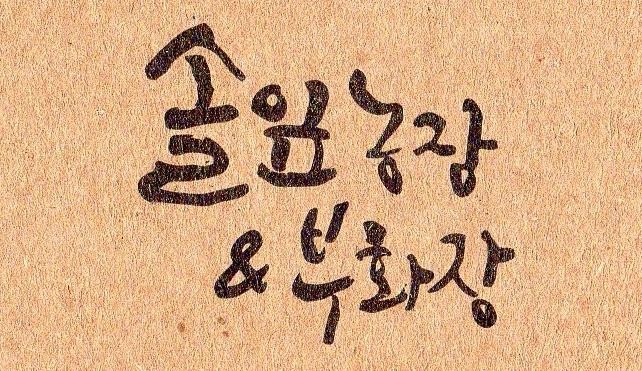 솔잎농장
& 부화장